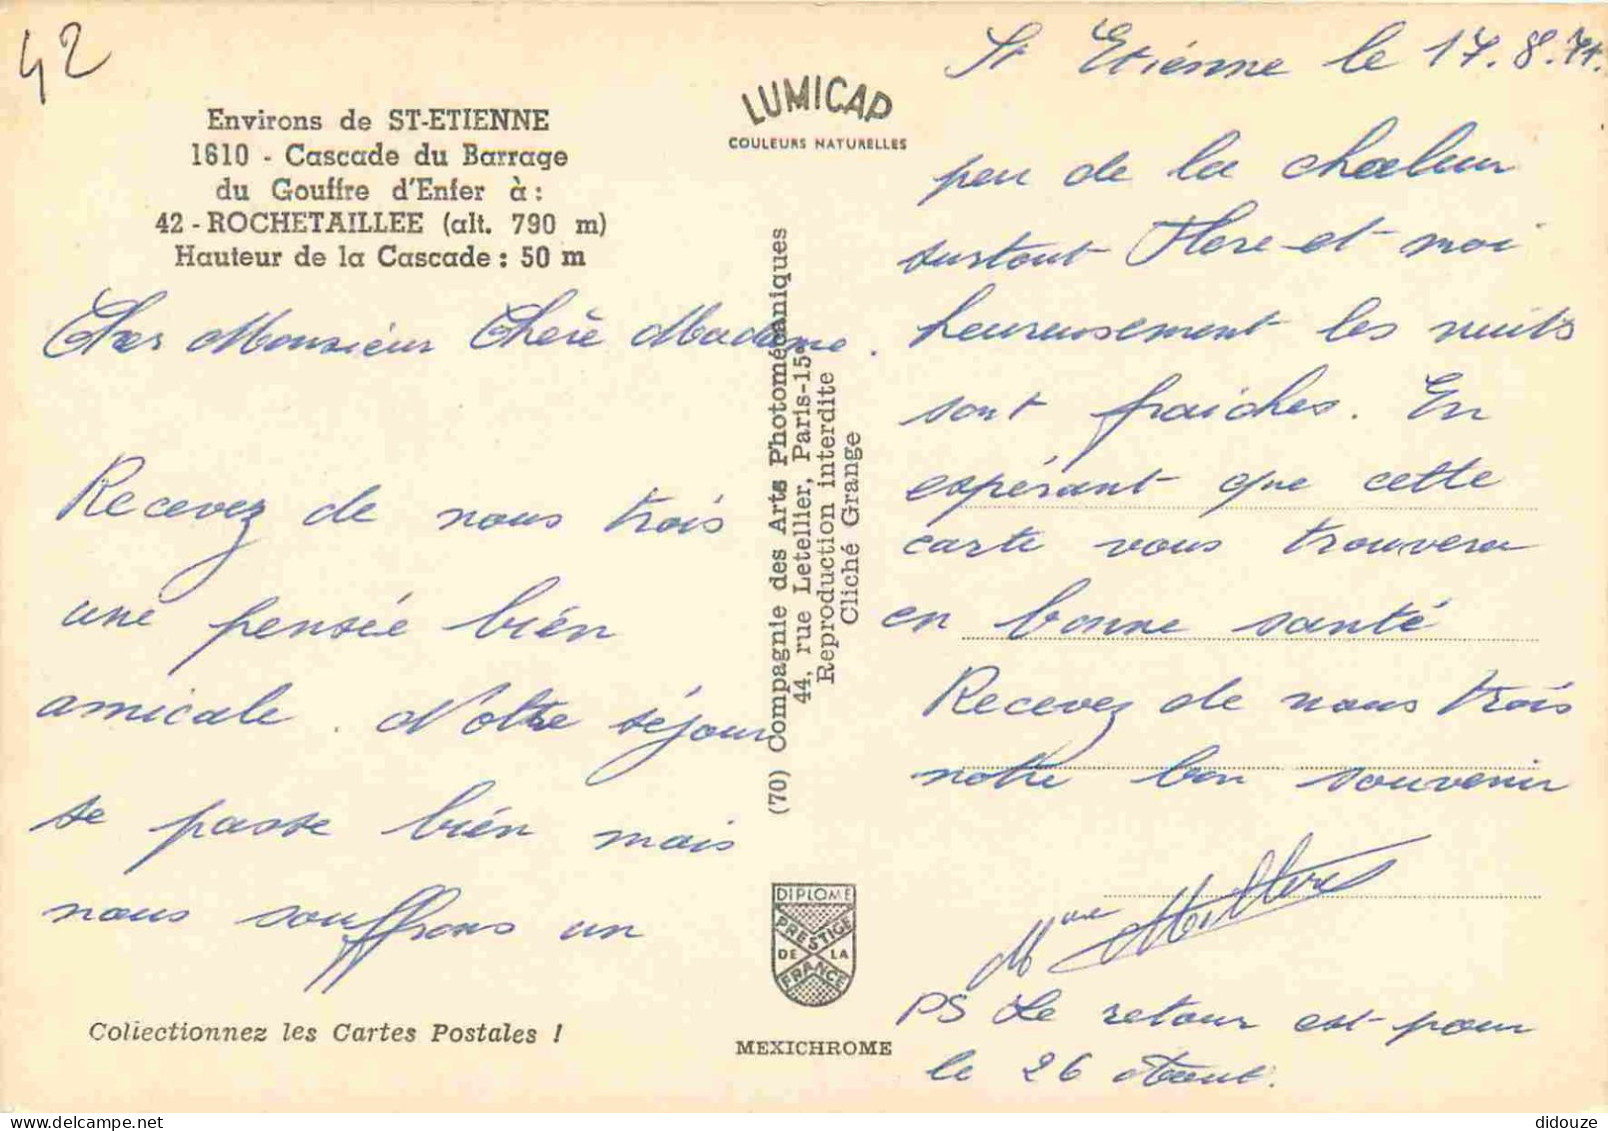 42
Environs de ST-ETIENNE
1610 - Cascade du Barrage
du Gouffre d'Enfer à :
42 - ROCHETAILLEE (alt. 790 m)
Hauteur de la Cascade : 50 m
Cher Monsieur Chère Madame.
Recevez de nous trois
une pensée bien
amicale. Notre séjour
se passe bien mais
nous souffrons un
Collectionnez les Cartes Postales !
LUMICAP
COULEURS NATURELLES
(70) Compagnie des Arts Photomécaniques
44, rue Letellier, Paris-15e
Reproduction interdite
Cliché Grange
DIPLOME
PRESTIGE
DE LA
FRANCE
MEXICHROME
St Etiénne le 17.8.71.
peu de la chaleur
surtout et moi
heureusement les nuits
sont fraiches. En
espérant que cette
carte vous trouvera
en bonne santé
Recevez de nous trois
notre bon souvenir
Mme
PS Le retour est pour
le 26 Aout.
didouze